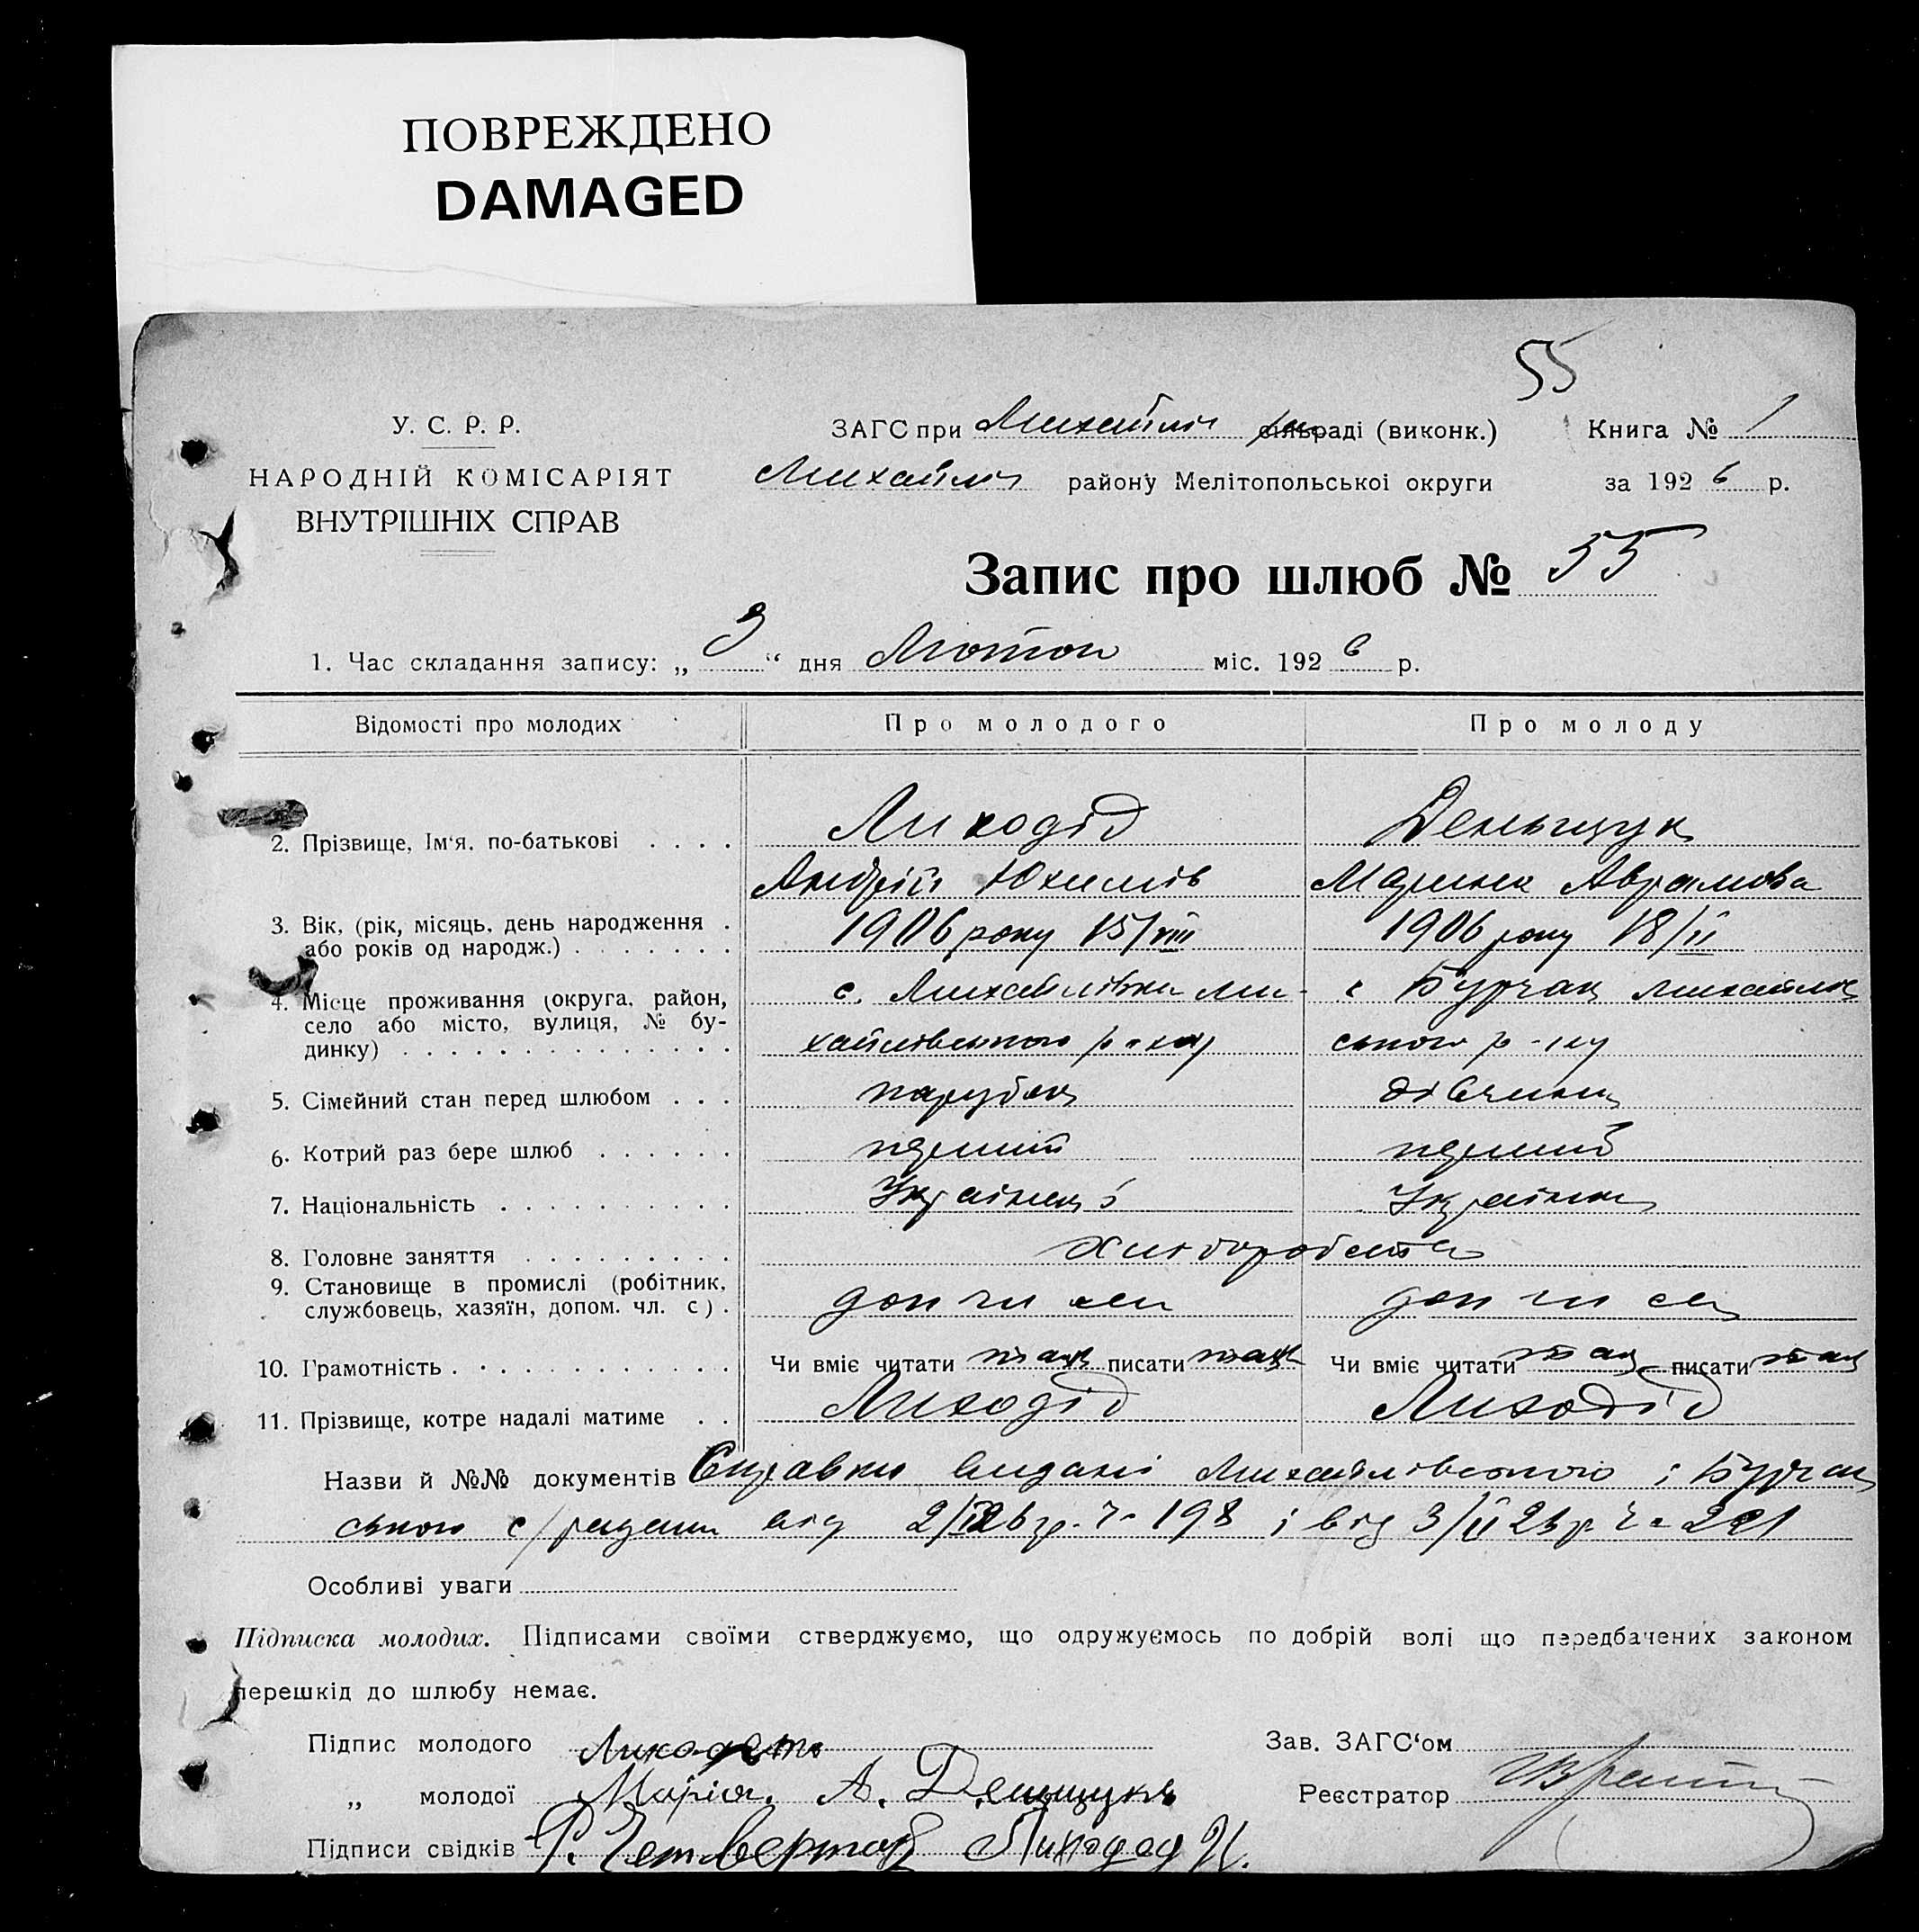 ПОВРЕЖДЕНО
DAMAGED
55
У. С. Р. Р.
НАРОДНІЙ КОМІСАРІЯТ
ВНУТРІШНІХ СПРАВ
ЗАГС при Михайлів сільраді (виконк.) Книга № 1
Михайлів району Мелітопольської округи за 1926 р.
Запис про шлюб № 55
1. Час складання запису: „3“ дня Лютого міс. 1926 р.
Відомості про молодих Про молодого Про молоду
2. Прізвище, Ім'я, по-батькові . . . . Лиходід Деньщук
Андрій Юхимів Марина Аврамова
3. Вік, (рік, місяць, день народження . або років од народж.) . . . . . . . 1906 року 15/VIII 1906 року 18/II
4. Місце проживання (округа, район, с. Михайлівка Ми- с Бурчак Михайлів
село або місто, вулиця, № бу-
динку) . . . . . . . . . . . . . . хайлівського р-ну ського р-ну
5. Сімейний стан перед шлюбом . . . парубок дівчина
6. Котрий раз бере шлюб . . . . . . перший перший
7. Національність . . . . . . . . . . Українець Українка
8. Головне заняття . . . . . . . . . хліборобство
9. Становище в промислі (робітник,
службовець, хазяїн, допом. чл. с) . доп чл см доп чл см
10. Грамотність . . . . . . . . . . . Чи вміє читати так писати так Чи вміє читати так писати так
11. Прізвище, котре надалі матиме . . Лиходід Лиходід
Назви й №№ документів Справки видані Михайлівського і Бурчак
ського с/радами від 2/II 26 р. ч. 198 і від 3/II 26 р. ч. 221
Особливі уваги
Підписка молодих. Підписами своїми стверджуємо, що одружуємось по добрій волі що передбачених законом
перешкід до шлюбу немає.
Підпис молодого Зав. ЗАГС'ом
„ молодої Марія. А. Денщукъ Реєстратор
Підписи свідків Лиходед И.